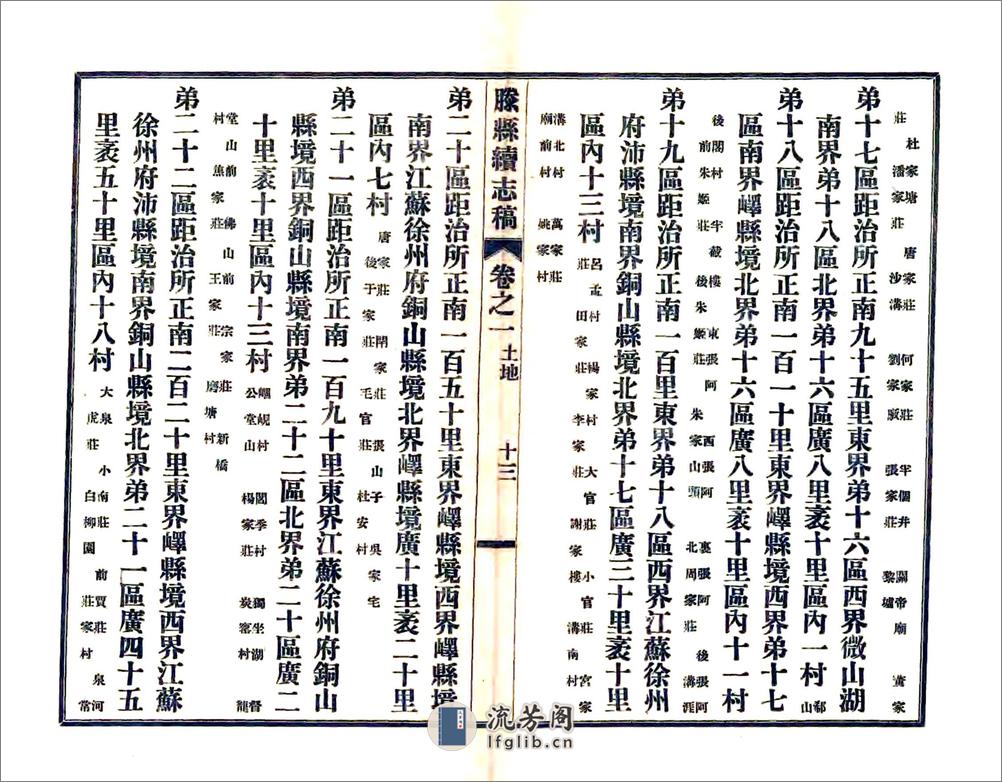 杜家塘 唐家莊 何家莊 半個井 關帝廟 黃家
莊 潘家莊 沙溝 劉家廒 張家莊 黎墟
弟十七區距治所正南九十五里東界弟十六區西界微山湖
南界弟十八區北界弟十六區廣八里袤十里區內一村 郗山
弟十八區距治所正南一百一十里東界嶧縣境西界弟十七
區南界嶧縣境北界弟十六區廣八里袤十里區內十一村
閣村 半截樓 東張阿 西張阿 裏張阿 後張阿
後 前朱姬莊 後朱姬莊 朱家山頭 北周家莊 溝涯
弟十九區距治所正南一百里東界弟十八區西界江蘇徐州
府沛縣境南界銅山縣境北界弟十七區廣三十里袤十里
區內十三村 呂孟村 楊家村 大官莊 小官莊 宮家
莊 田家莊 李家莊 謝家樓 溝南村
溝北村 萬家莊
廟前村 姚家村
滕縣續志稿 卷之一 土地 十三
弟二十區距治所正南一百五十里東界嶧縣境西界嶧縣境
南界江蘇徐州府銅山縣境北界嶧縣境廣十里袤二十里
區內七村 唐家莊 閉家莊 張山子 吳家宅
後于家莊 毛官莊 杜安村
弟二十一區距治所正南一百九十里東界江蘇徐州府銅山
縣境西界銅山縣境南界弟二十二區北界弟二十區廣二
十里袤十里區內十三村 崓峴村 閻季村 獨坐湖 督
公堂山 楊家莊 炭窰村 龍
堂山前 佛山前 宗家莊 新橋
村 焦家莊 王家莊 磨塘村
弟二十二區距治所正南二百二十里東界嶧縣境西界江蘇
徐州府沛縣境南界銅山縣境北界弟二十一區廣四十五
里袤五十里區內十八村 大泉 小南莊 前賈莊 泉河
虎莊 白柳園 莊家村 常
流芳阁
lfglib.cn